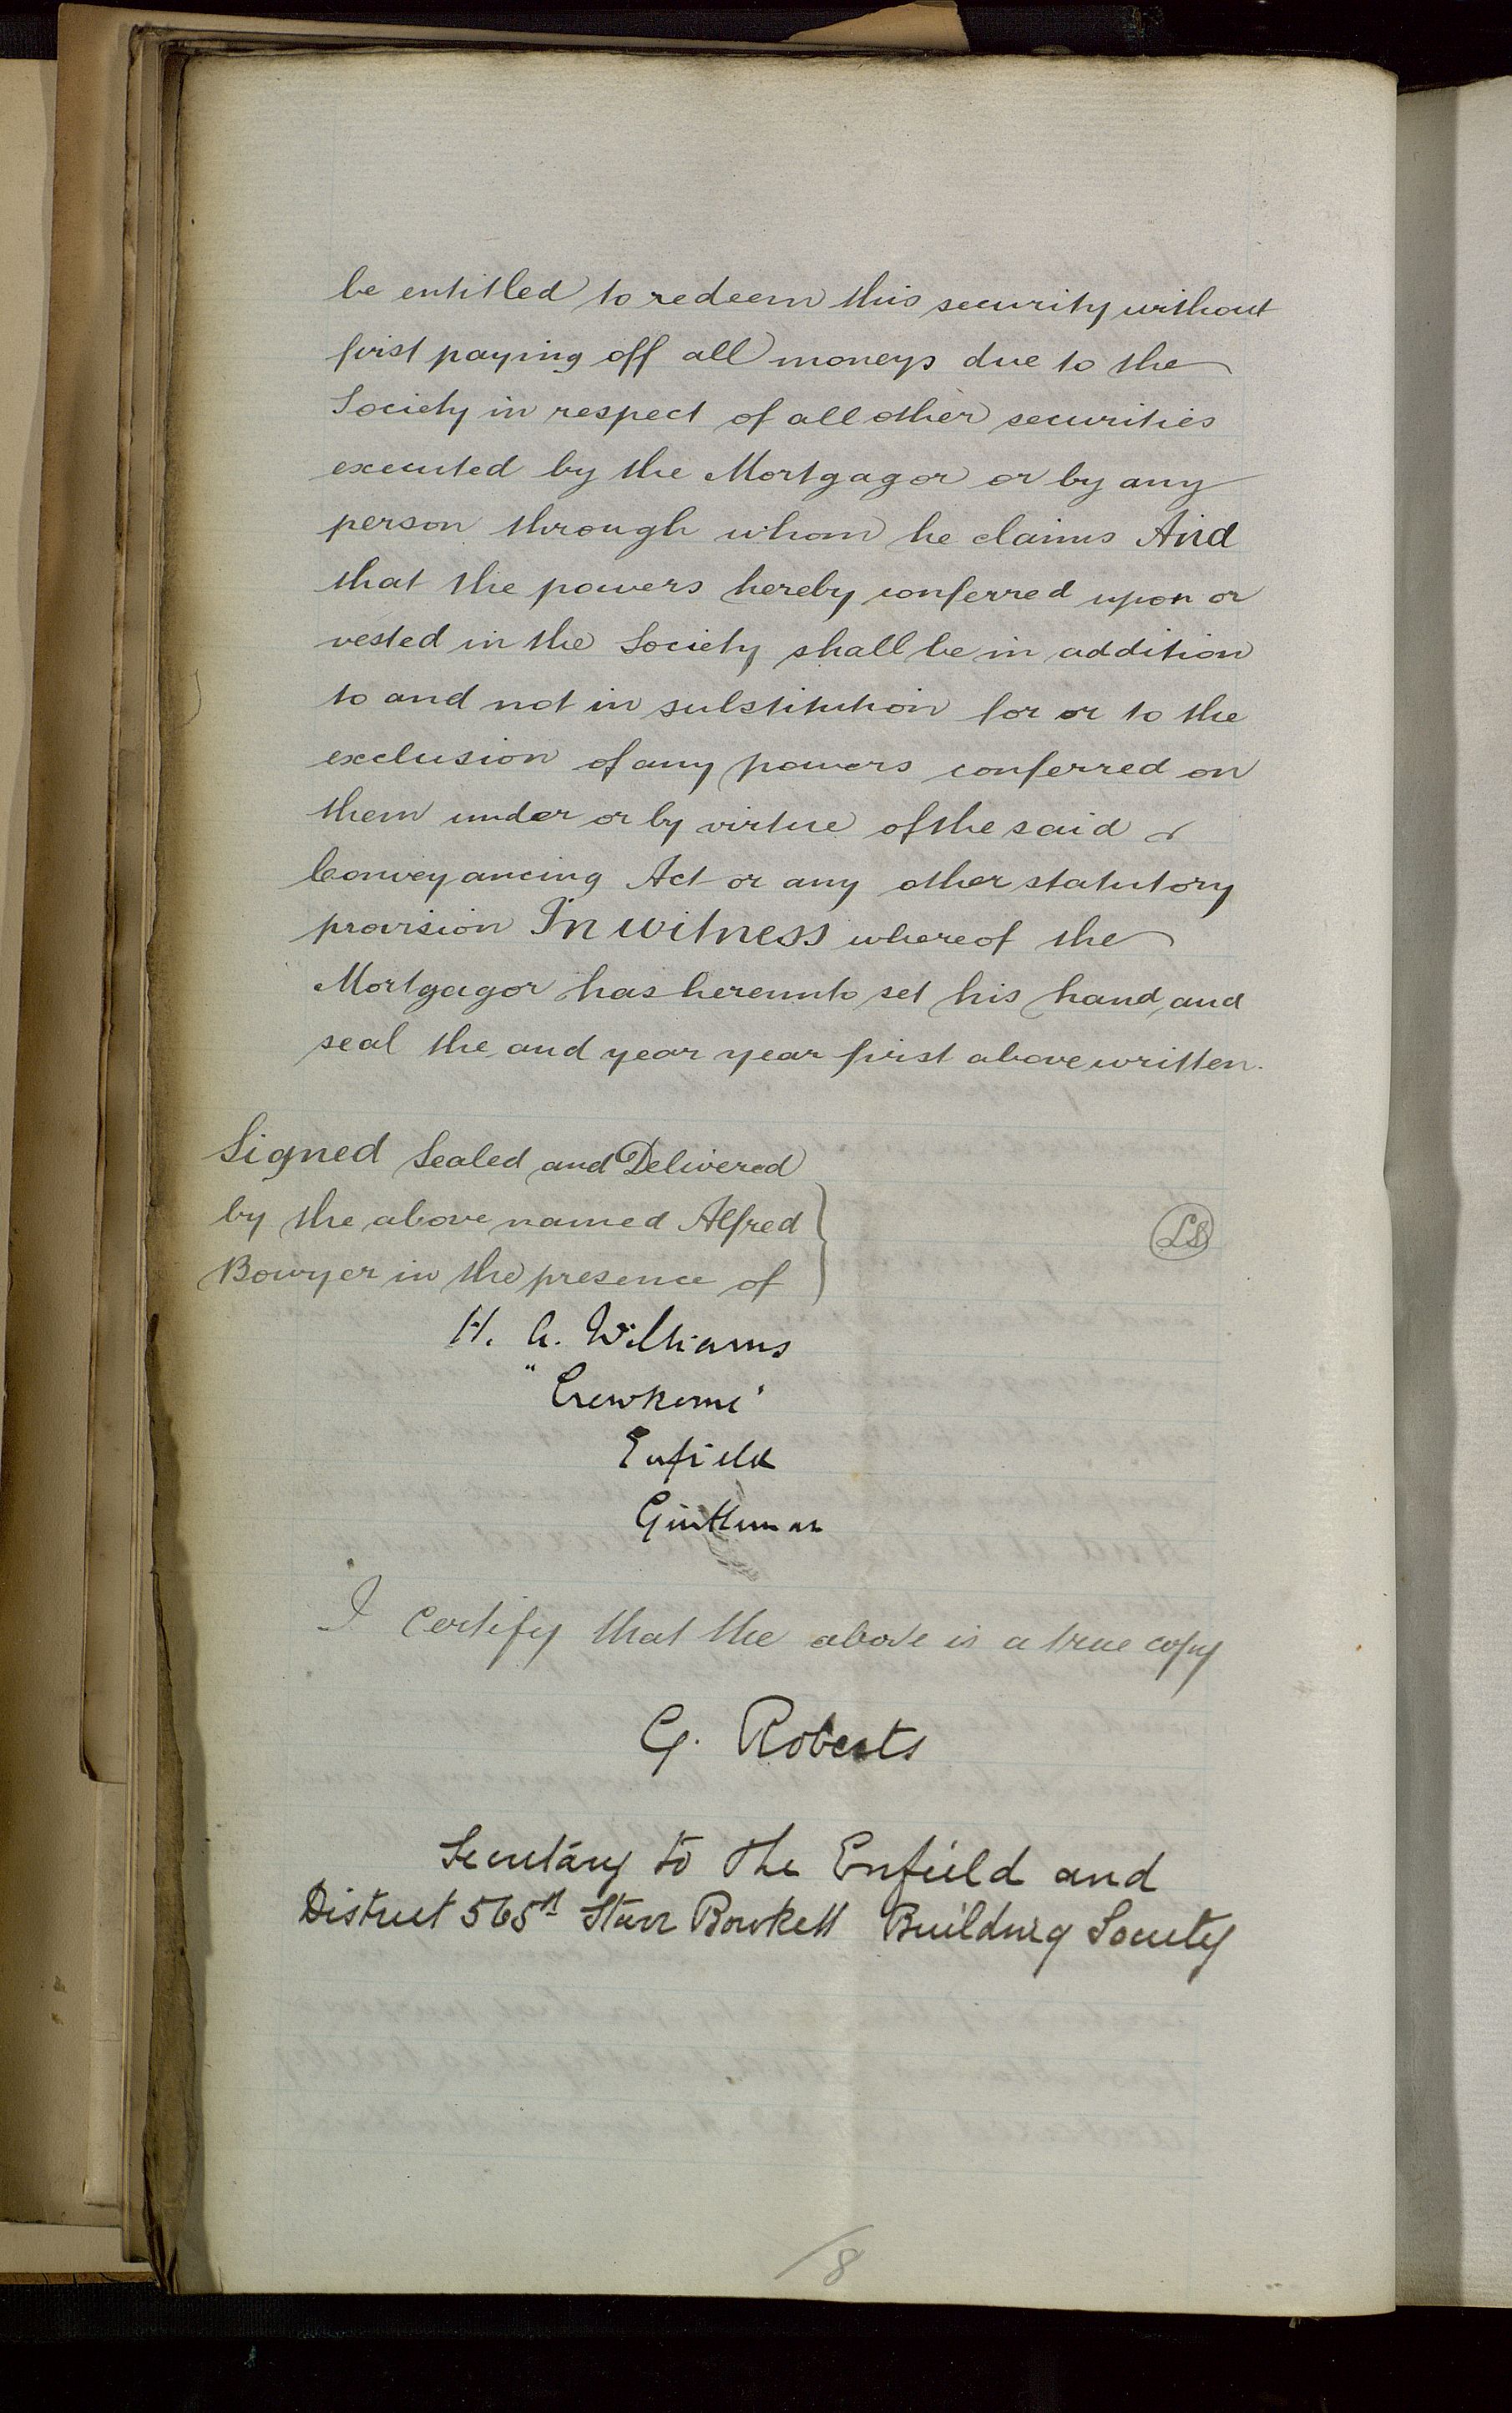 be entitled to redeem this security without
first paying off all moneys due to the
Society in respect of all other securities
executed by the Mortgagor or by any
person through whom he claims And
that the powers hereby conferred upon or
vested in the Society shall be in addition
to and not in substitution for or to the
exclusion of any powers conferred on
them under or by virtue of the said
Conveyancing Act or any other statutory
provision In witness whereof the
Mortgagor has hereunto set his hand and
seal the and year year first above written.
Signed Sealed and Delivered
by the above named Alfred
Bowyer in the presence of
LS
H. A. Williams
"Crewkerne"
Enfield
Gentleman
I certify that the above is a true copy
G. Roberts
Secretary to The Enfield and
District 565th Starr Bowkett Building Society
/8